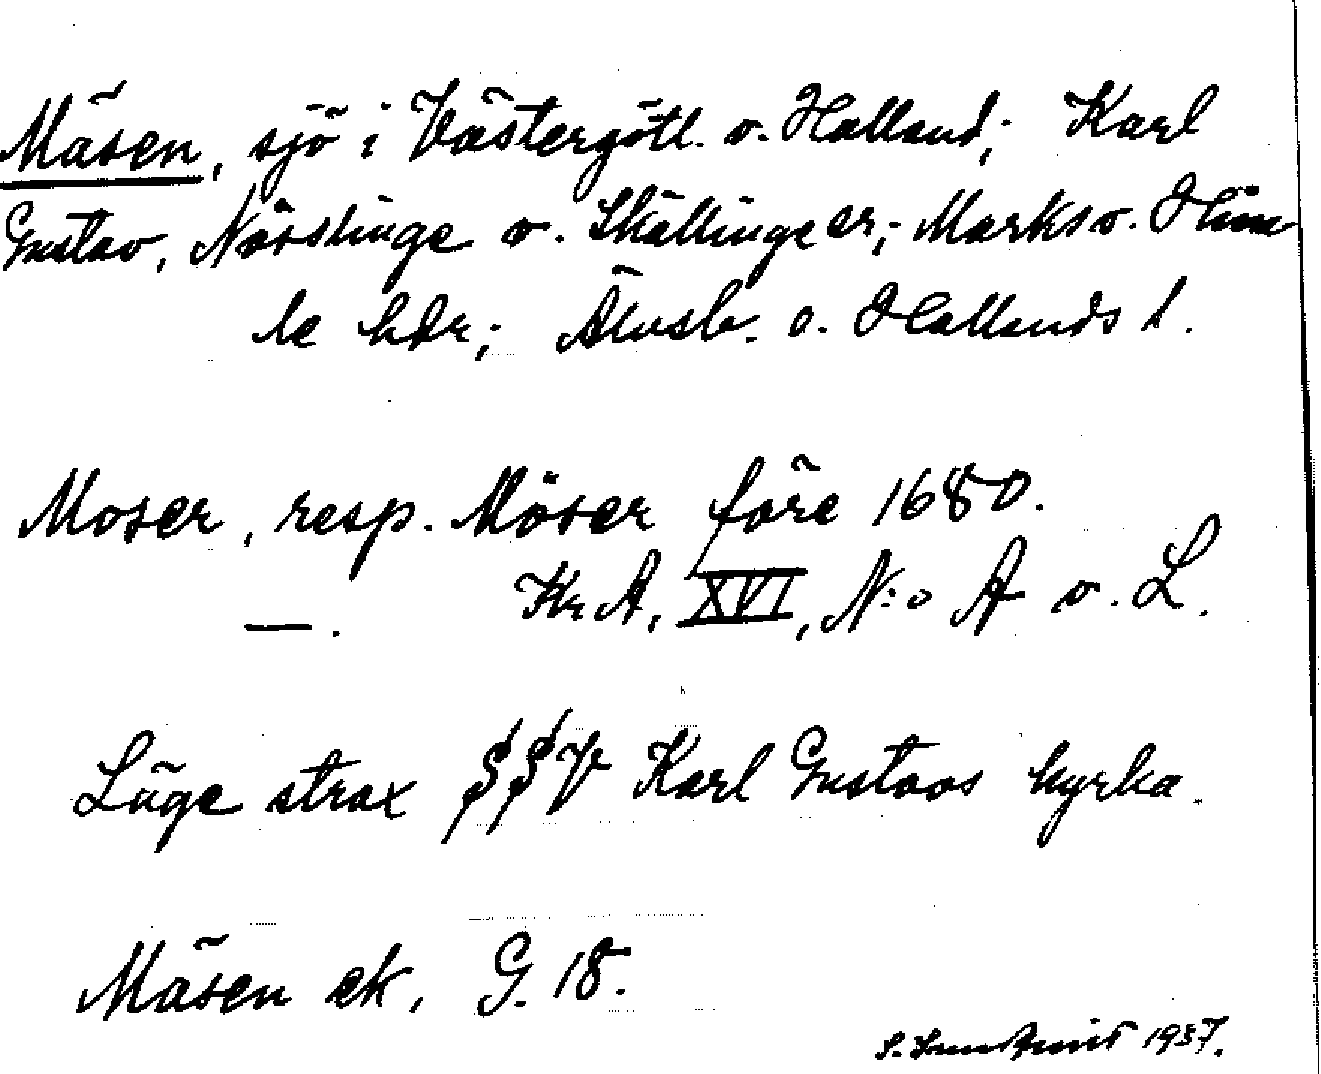 Mäsen, sjö i Västergötl. o. Halland; Karl
Gustav, Nösslinge o. Skällinge er; Marks o. Him
le hdr; Älvsb. o. Hallands l.
Moser, resp. Möser före 1680.
—. Kr A, XVI, N:o A o. L.
Läge strax SSV Karl Gustavs kyrka.
Mäsen ek. G. 18.
S. 1937.